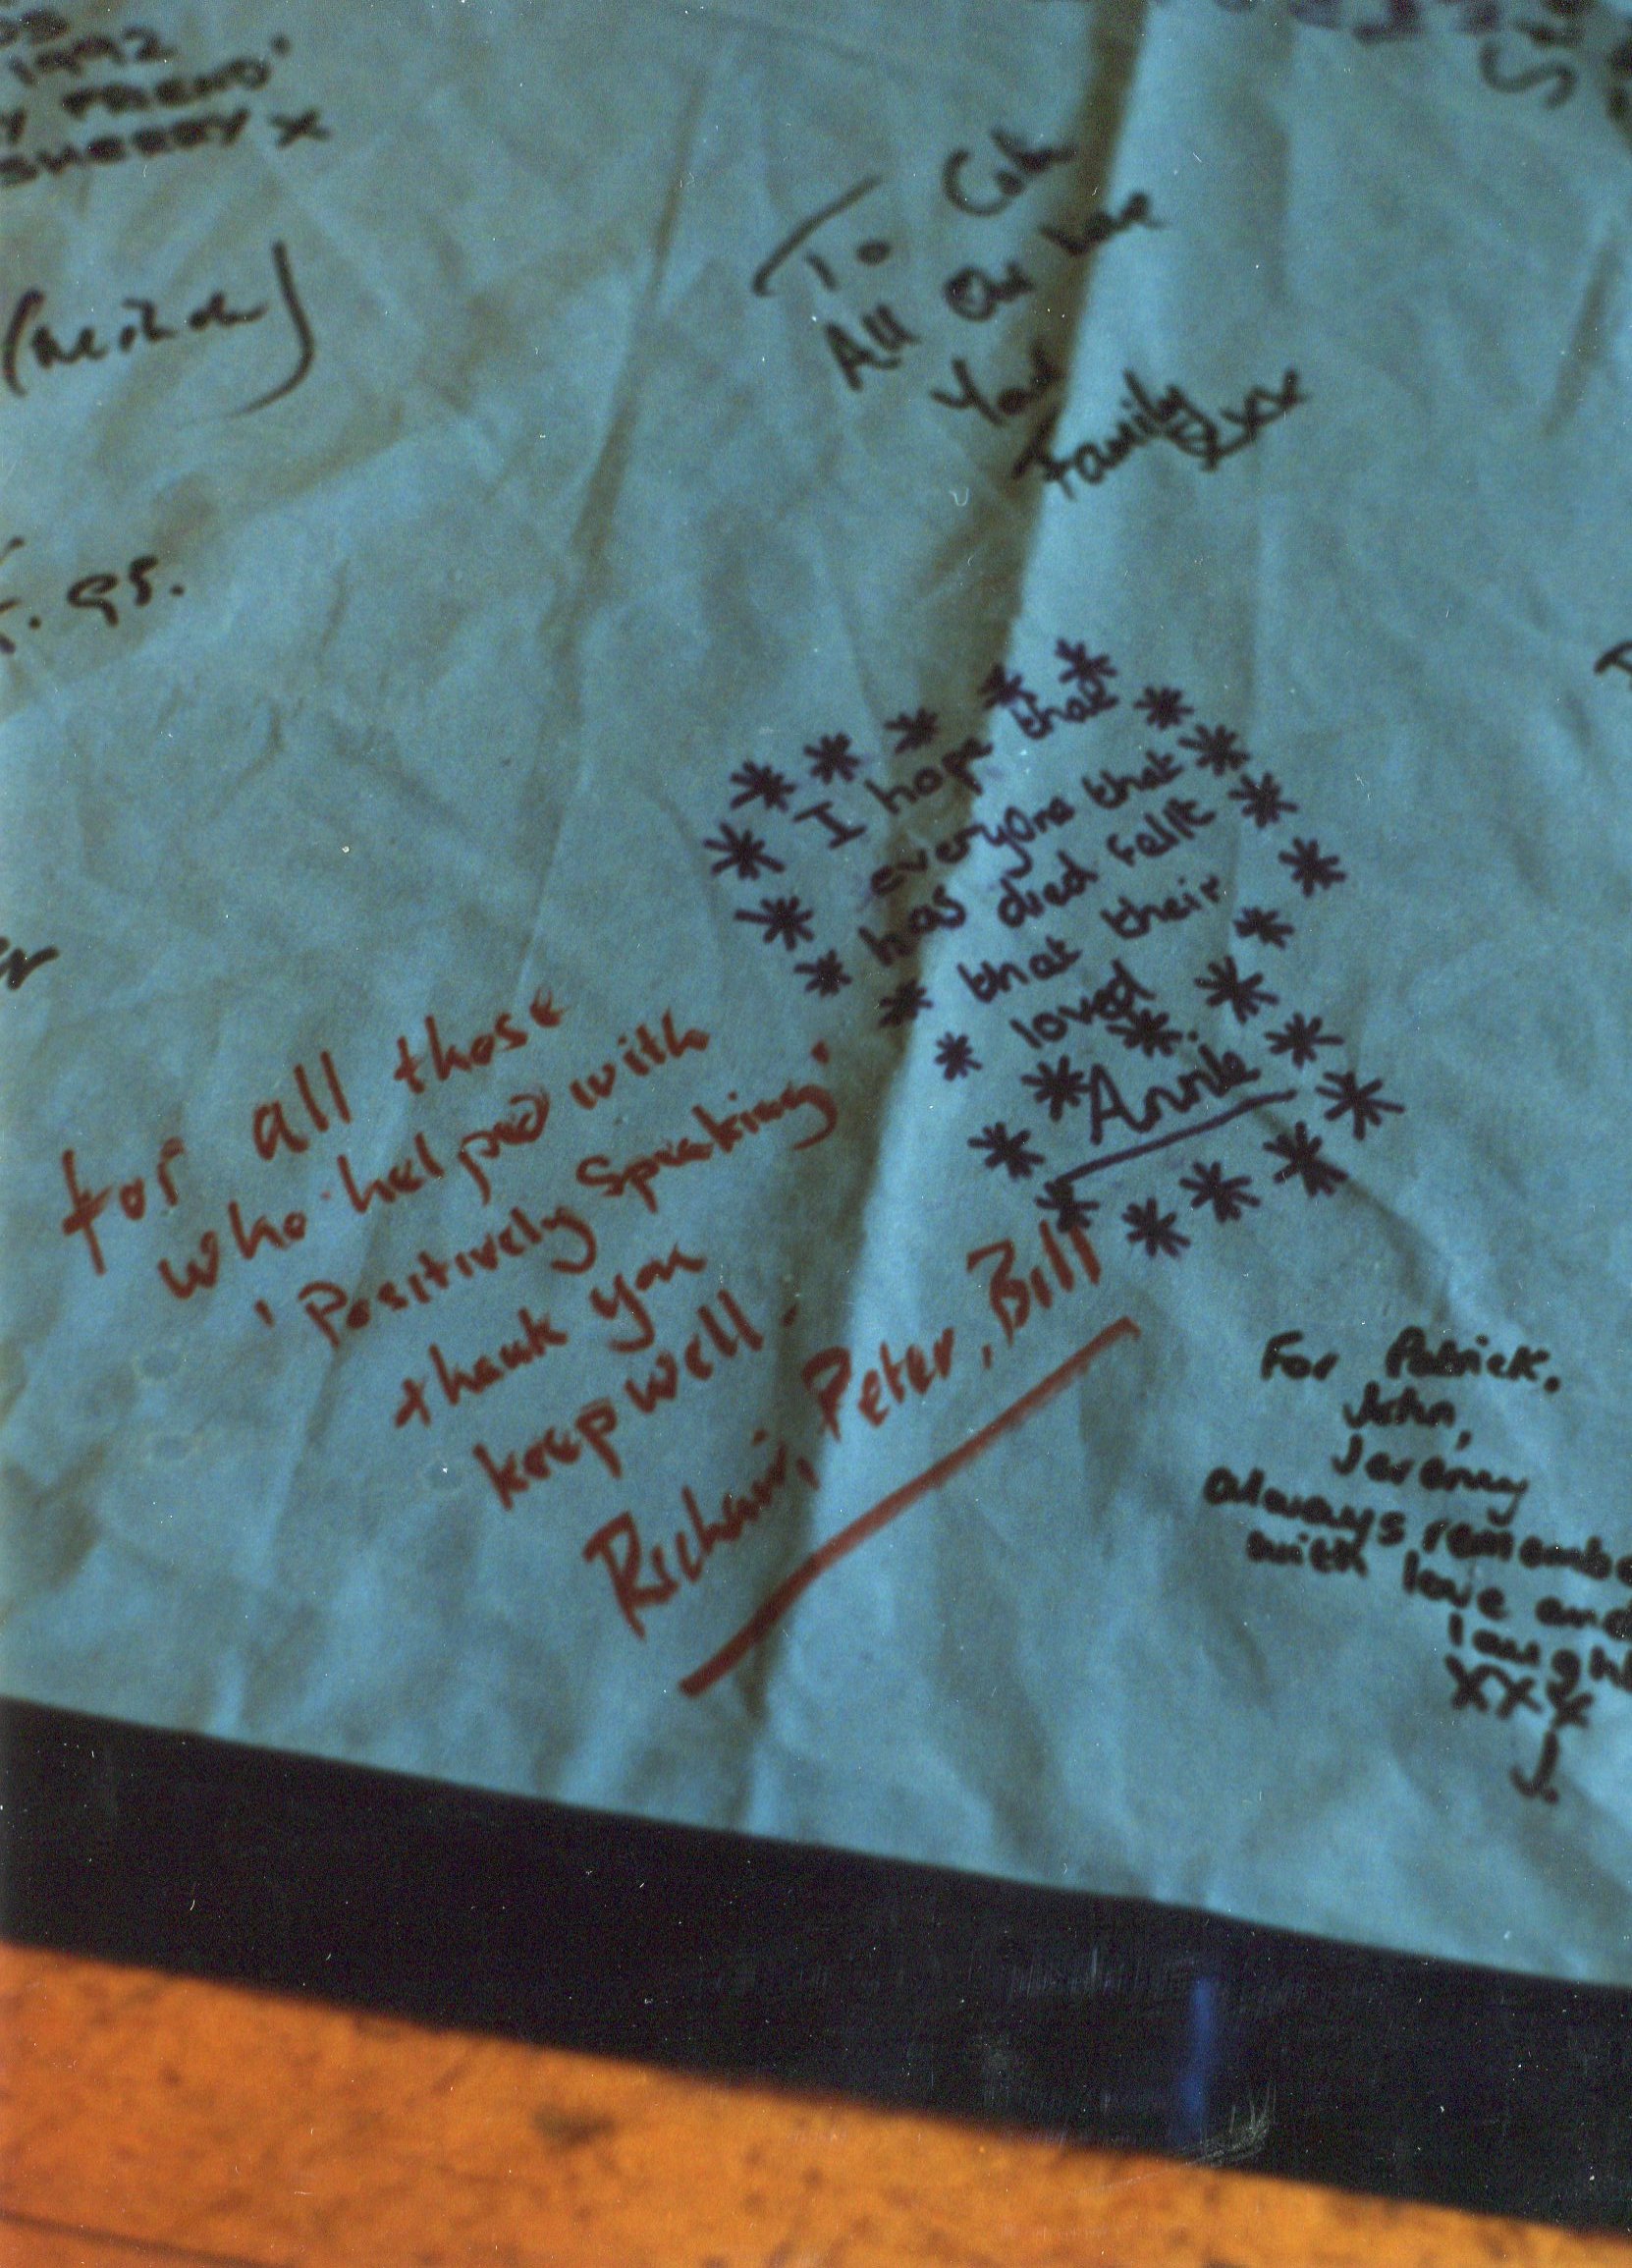 1992
SHERRY X
95.
To
All Our love
Your
Family xxx
I hope that
everyone that
has died fellt
that their
loved
Annie
for all those
who helped with
'Positively Speaking'
thank you
keep well.
Richard, Peter, Bill
For Patrick,
John,
Jeremy
always remembe
with love and
laugh
XXX
J.